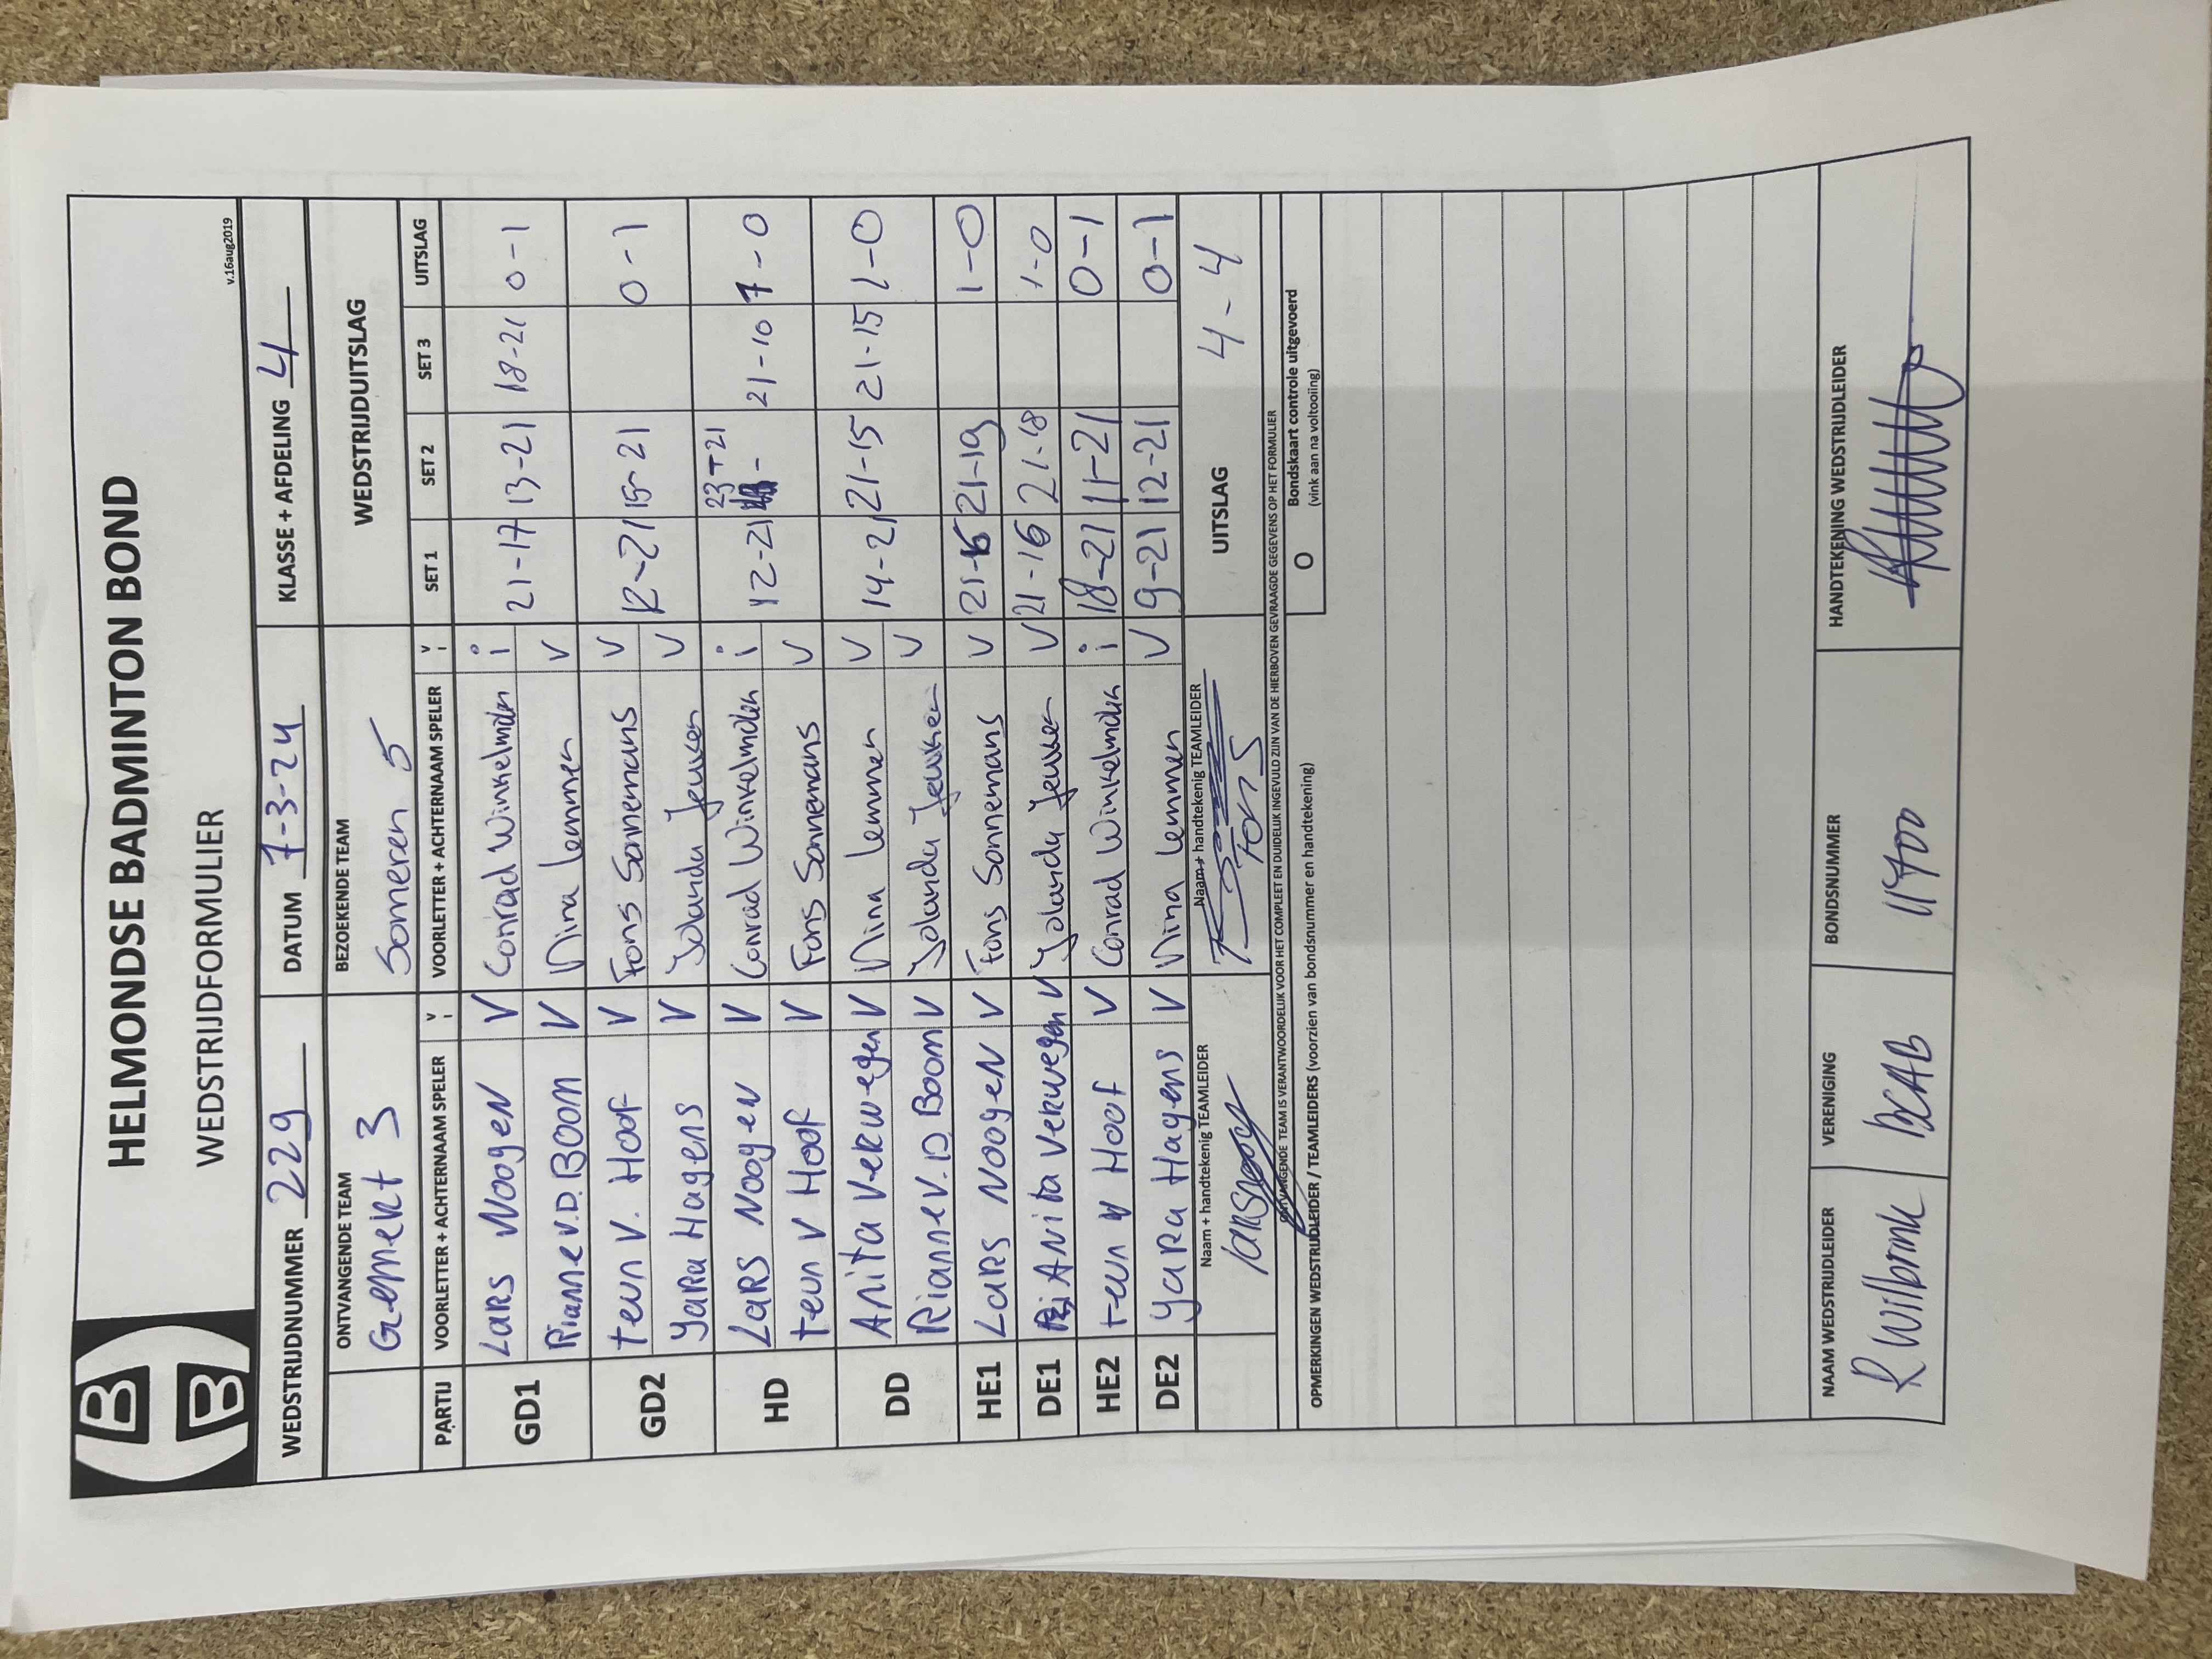 HELMONDSE BADMINTON BOND
WEDSTRIJDFORMULIER
v.16aug2019
WEDSTRIJDNUMMER 229 DATUM 7-3-24 KLASSE + AFDELING 4
ONTVANGENDE TEAM BEZOEKENDE TEAM WEDSTRIJDUITSLAG
Gemert 3 Someren 5
PARTIJ VOORLETTER + ACHTERNAAM SPELER V I VOORLETTER + ACHTERNAAM SPELER V I SET 1 SET 2 SET 3 UITSLAG
GD1 Lars Noogen V Conrad Winkelmolen i 21-17 13-21 18-21 0-1
Rianne v.D. Boom V Nina Lemmen V
GD2 Teun V. Hoof V Fons Sonnemans V 12-21 15-21 0-1
Yara Hagens V Jolanda Jeuken V
HD Lars Noogen V Conrad Winkelmolen i 12-21 23-21 21-10 1-0
Teun V Hoof V Fons Sonnemans V
DD Anita Verwegen V Nina Lemmen V 14-21 21-15 21-15 1-0
Rianne V.D. Boom V Jolanda Jeuken V
HE1 Lars Noogen V Fons Sonnemans V 21-15 21-19 1-0
DE1 Anita Verwegen V Jolanda Jeuken V 21-16 21-18 1-0
HE2 Teun V Hoof V Conrad Winkelmolen i 18-21 11-21 0-1
DE2 Yara Hagens V Nina Lemmen V 9-21 12-21 0-1
Naam + handtekenig TEAMLEIDER Naam + handtekenig TEAMLEIDER UITSLAG 4-4
Fons
ONTVANGENDE TEAM IS VERANTWOORDELIJK VOOR HET COMPLEET EN DUIDELIJK INGEVULD ZIJN VAN DE HIERBOVEN GEVRAAGDE GEGEVENS OP HET FORMULIER
OPMERKINGEN WEDSTRIJDLEIDER / TEAMLEIDERS (voorzien van bondsnummer en handtekening)
O Bondskaart controle uitgevoerd
(vink aan na voltooiing)
NAAM WEDSTRIJDLEIDER VERENIGING BONDSNUMMER HANDTEKENING WEDSTRIJDLEIDER
R Wilbrink BCAB